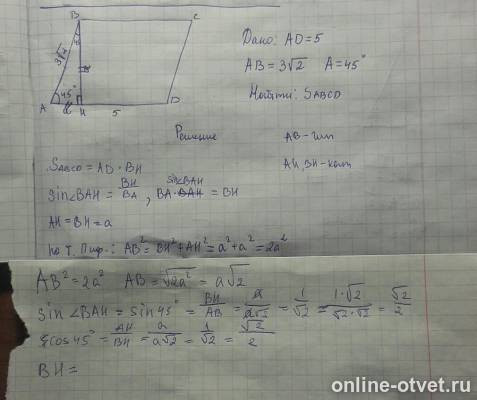 B
C
3√2
45°
A
H
5
D
Дано: AD=5
AB = 3√2 A=45°
Найти: SABCD
Решение
AB-гип
AH, BH-кат
SABCD = AD · BH
sin∠BAH = BH/BA, BA· sin∠BAH = BH
AH = BH = a
по т. Пиф.: AB² = BH² + AH² = a² + a² = 2a²
AB² = 2a² AB = √2a² = a√2
sin ∠BAH = sin 45° = BH/AB = a/a√2 = 1/√2 = 1·√2/√2·√2 = √2/2
cos 45° = AH/BH = a/a√2 = 1/√2 = √2/2
BH =
online-otvet.ru